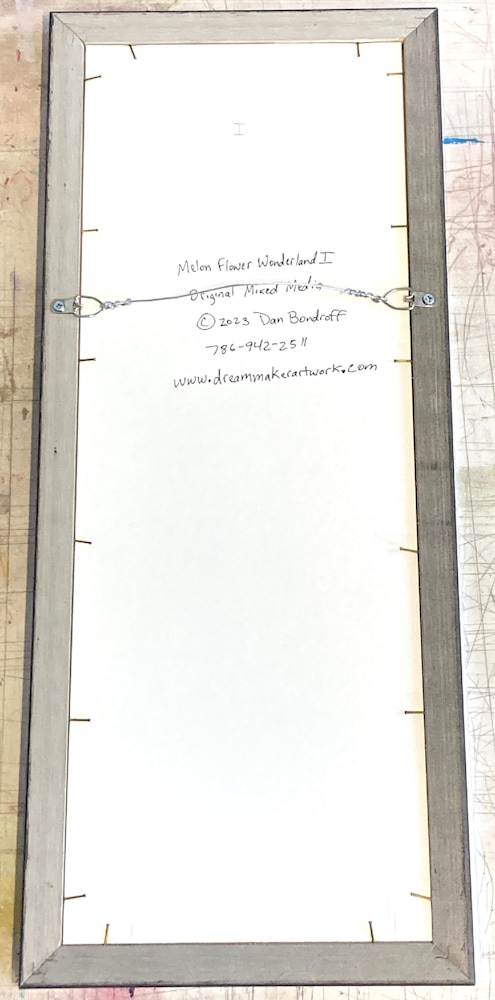 I
Melon Flower Wonderland I
Original Mixed Media
© 2023 Dan Bondroff
786-942-2511
www.dreammakerartwork.com